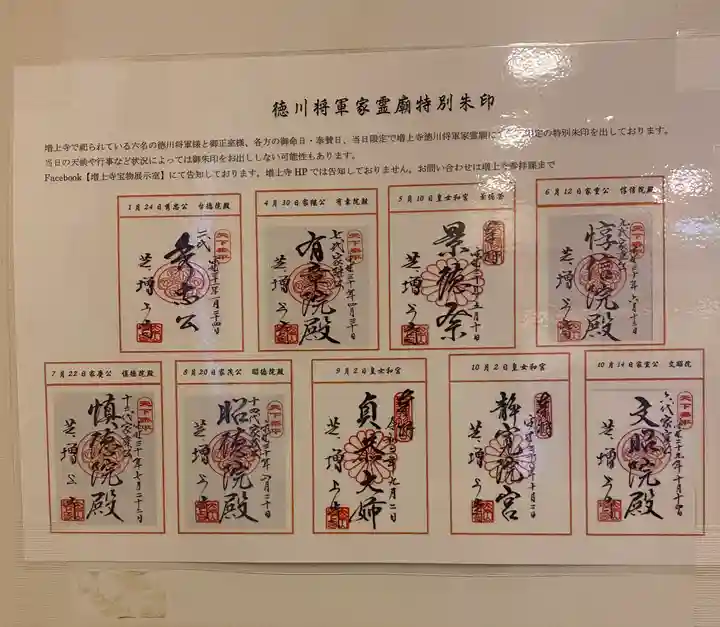 徳川将軍家霊廟特別朱印
増上寺で祀られている六名の徳川将軍様と御正室様、各方の御命日・奉賛日、当日限定で増上寺徳川将軍家霊廟に 限定の特別朱印を出しております。
当日の天候や行事など状況によっては御朱印をお出ししない可能性もあります。
Facebook【増上寺宝物展示室】にて告知しております。増上寺HPでは告知しておりません。お問い合わせは増上寺参拝課まで
1月24日秀忠公 台徳院殿
二代
秀忠公
芝 増上寺
4月30日家継公 有章院殿
七代家継公
有章院殿
四月三十日
芝 増上寺
5月10日皇女和宮 景徳祭
景徳祭
五月十日
芝 増上寺
6月12日家重公 惇信院殿
九代家重公
惇信院殿
六月十二日
芝 増上寺
7月22日家慶公 慎徳院殿
十二代家慶公
慎徳院殿
三十年七月二十二日
芝 増上寺
8月20日家茂公 昭徳院殿
十四代家茂公
昭徳院殿
八月二十日
芝 増上寺
9月2日皇女和宮
貞恭大姉
九月二日
芝 増上寺
10月2日皇女和宮
静寛院宮
十月二日
芝 増上寺
10月14日家宣公 文昭院
六代家宣公
文昭院殿
十月十四日
芝 増上寺